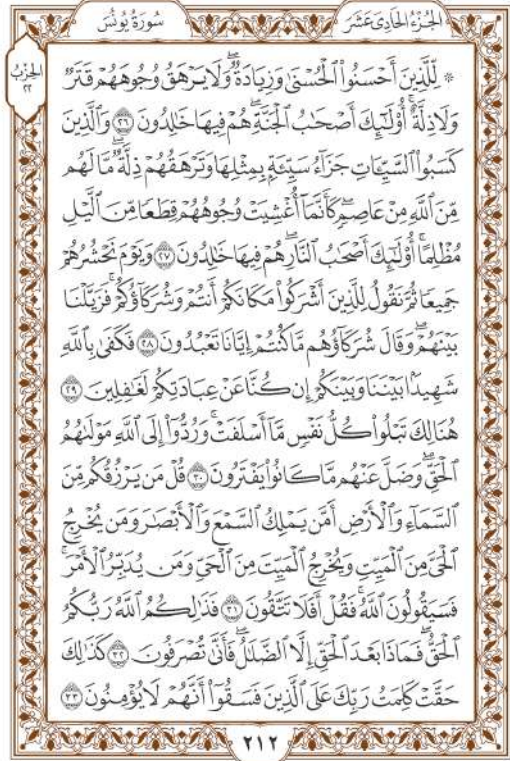 الجُزْءُ الحَادِى عَشَرَ
سُورَةُ يُونُسَ
الحِزْبُ
٢٢
۞ لِّلَّذِينَ أَحْسَنُوا۟ ٱلْحُسْنَىٰ وَزِيَادَةٌۭ ۖ وَلَا يَرْهَقُ وُجُوهَهُمْ قَتَرٌۭ
وَلَا ذِلَّةٌ ۚ أُو۟لَـٰٓئِكَ أَصْحَـٰبُ ٱلْجَنَّةِ ۖ هُمْ فِيهَا خَـٰلِدُونَ ٢٦ وَٱلَّذِينَ
كَسَبُوا۟ ٱلسَّيِّـَٔاتِ جَزَآءُ سَيِّئَةٍۭ بِمِثْلِهَا وَتَرْهَقُهُمْ ذِلَّةٌۭ ۖ مَّا لَهُم
مِّنَ ٱللَّهِ مِنْ عَاصِمٍۢ ۖ كَأَنَّمَآ أُغْشِيَتْ وُجُوهُهُمْ قِطَعًۭا مِّنَ ٱلَّيْلِ
مُظْلِمًا ۚ أُو۟لَـٰٓئِكَ أَصْحَـٰبُ ٱلنَّارِ ۖ هُمْ فِيهَا خَـٰلِدُونَ ٢٧ وَيَوْمَ نَحْشُرُهُمْ
جَمِيعًۭا ثُمَّ نَقُولُ لِلَّذِينَ أَشْرَكُوا۟ مَكَانَكُمْ أَنتُمْ وَشُرَكَآؤُكُمْ ۚ فَزَيَّلْنَا
بَيْنَهُمْ ۖ وَقَالَ شُرَكَآؤُهُم مَّا كُنتُمْ إِيَّانَا تَعْبُدُونَ ٢٨ فَكَفَىٰ بِٱللَّهِ
شَهِيدًۢا بَيْنَنَا وَبَيْنَكُمْ إِن كُنَّا عَنْ عِبَادَتِكُمْ لَغَـٰفِلِينَ ٢٩
هُنَالِكَ تَبْلُوا۟ كُلُّ نَفْسٍۢ مَّآ أَسْلَفَتْ ۚ وَرُدُّوٓا۟ إِلَى ٱللَّهِ مَوْلَىٰهُمُ
ٱلْحَقِّ ۖ وَضَلَّ عَنْهُم مَّا كَانُوا۟ يَفْتَرُونَ ٣٠ قُلْ مَن يَرْزُقُكُم مِّنَ
ٱلسَّمَآءِ وَٱلْأَرْضِ أَمَّن يَمْلِكُ ٱلسَّمْعَ وَٱلْأَبْصَـٰرَ وَمَن يُخْرِجُ
ٱلْحَىَّ مِنَ ٱلْمَيِّتِ وَيُخْرِجُ ٱلْمَيِّتَ مِنَ ٱلْحَىِّ وَمَن يُدَبِّرُ ٱلْأَمْرَ ۚ
فَسَيَقُولُونَ ٱللَّهُ ۚ فَقُلْ أَفَلَا تَتَّقُونَ ٣١ فَذَٰلِكُمُ ٱللَّهُ رَبُّكُمُ
ٱلْحَقُّ ۖ فَمَاذَا بَعْدَ ٱلْحَقِّ إِلَّا ٱلضَّلَـٰلُ ۖ فَأَنَّىٰ تُصْرَفُونَ ٣٢ كَذَٰلِكَ
حَقَّتْ كَلِمَتُ رَبِّكَ عَلَى ٱلَّذِينَ فَسَقُوٓا۟ أَنَّهُمْ لَا يُؤْمِنُونَ ٣٣
٢١٢